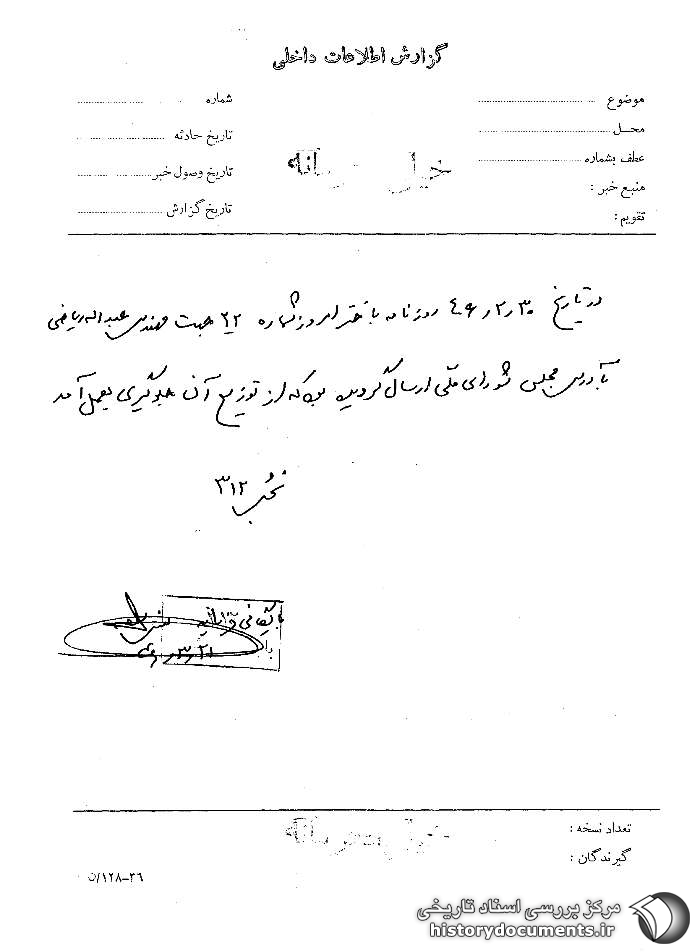 گزارش اطلاعات داخلی
موضوع
محل
عطف بشماره
منبع خبر :
تقویم :
شماره
تاریخ حادثه
تاریخ وصول خبر
تاریخ گزارش
در تاریخ ۳۰ر۲ر۴۶ روزنامه باختر امروز شماره ۶۲ جهت مهندس عبداله ریاضی
بآدرس مجلس شورای ملی ارسال گردیده بود که از توزیع آن جلوگیری بعمل آمد
۳۱۲
بایگانی
تعداد نسخه :
گیرندگان :
۳۶-۱۲۸/ن
مرکز بررسی اسناد تاریخی
historydocuments.ir